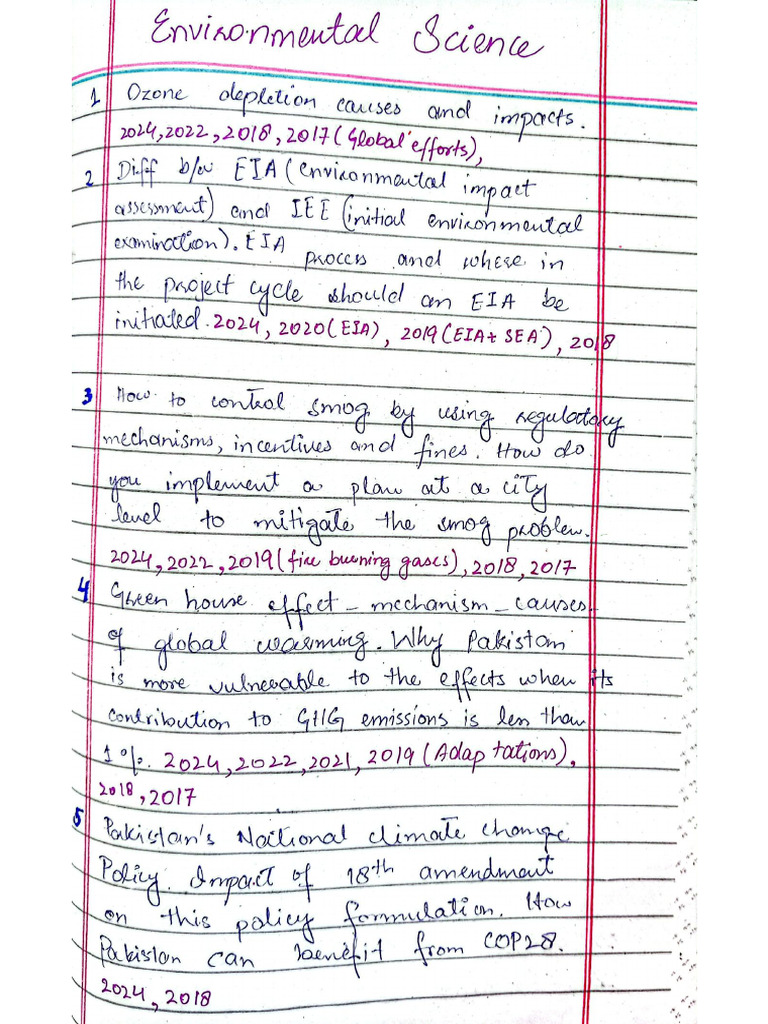 Environmental Science
1 Ozone depletion causes and impacts.
2024, 2022, 2018, 2017 (Global efforts),
2 Diff b/w EIA (environmental impact
assessment) and IEE (initial environmental
examination). EIA process and where in
the project cycle should an EIA be
initiated. 2024, 2020 (EIA), 2019 (EIA+ SEA), 2018
3 How to control smog by using regulatory
mechanisms, incentives and fines. How do
you implement a plan at a city
level to mitigate the smog problem.
2024, 2022, 2019 (fire burning gases), 2018, 2017
4 Green house effect - mechanism - causes
of global warming. Why Pakistan
is more vulnerable to the effects when its
contribution to GHG emissions is less than
1%. 2024, 2022, 2021, 2019 (Adaptations),
2018, 2017
5 Pakistan's National climate change
Policy. Impact of 18th amendment
on this policy formulation. How
Pakistan can benefit from COP28.
2024, 2018